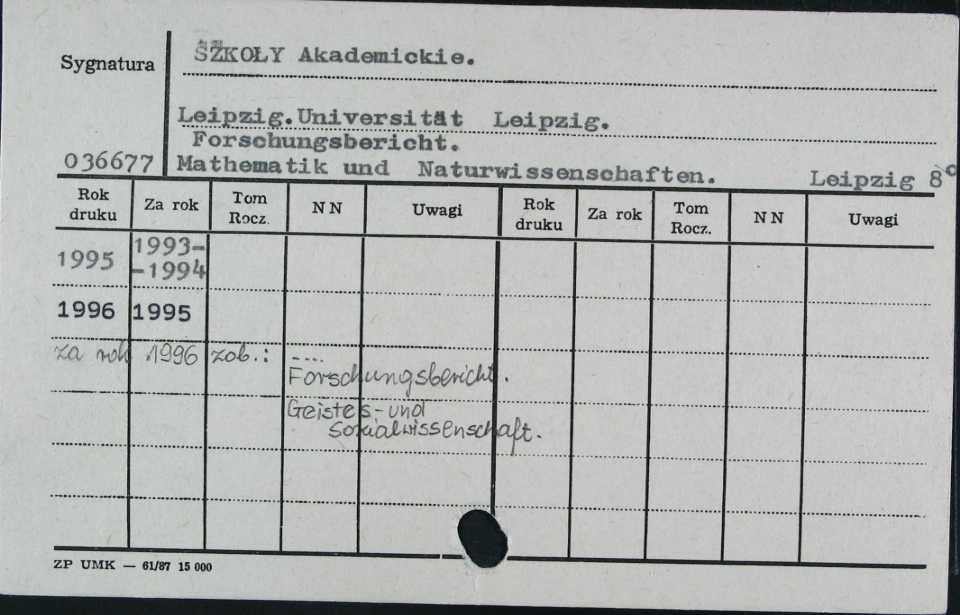 Sygnatura
SZKOŁY Akademickie.
Leipzig.Universität Leipzig.
Forschungsbericht.
036677 Mathematik und Naturwissenschaften. Leipzig 8°
Rok druku Za rok Tom Rocz. NN Uwagi Rok druku Za rok Tom Rocz. NN Uwagi
1995 1993-
-1994
1996 1995
za rok 1996 zob.: ----
Forschungsbericht.
Geistes-und
Sozialwissenschaft.
ZP UMK — 61/87 15 000